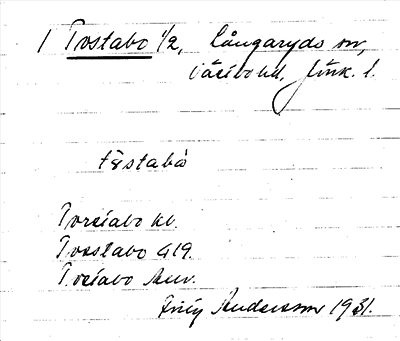 1 Torstabo 1/2, Långaryds sn,
Västbo hd, Jönk. l.
tɤstabò
Torstabo kb.
Torstabo GI9.
Torstabo
Andersson 1931.